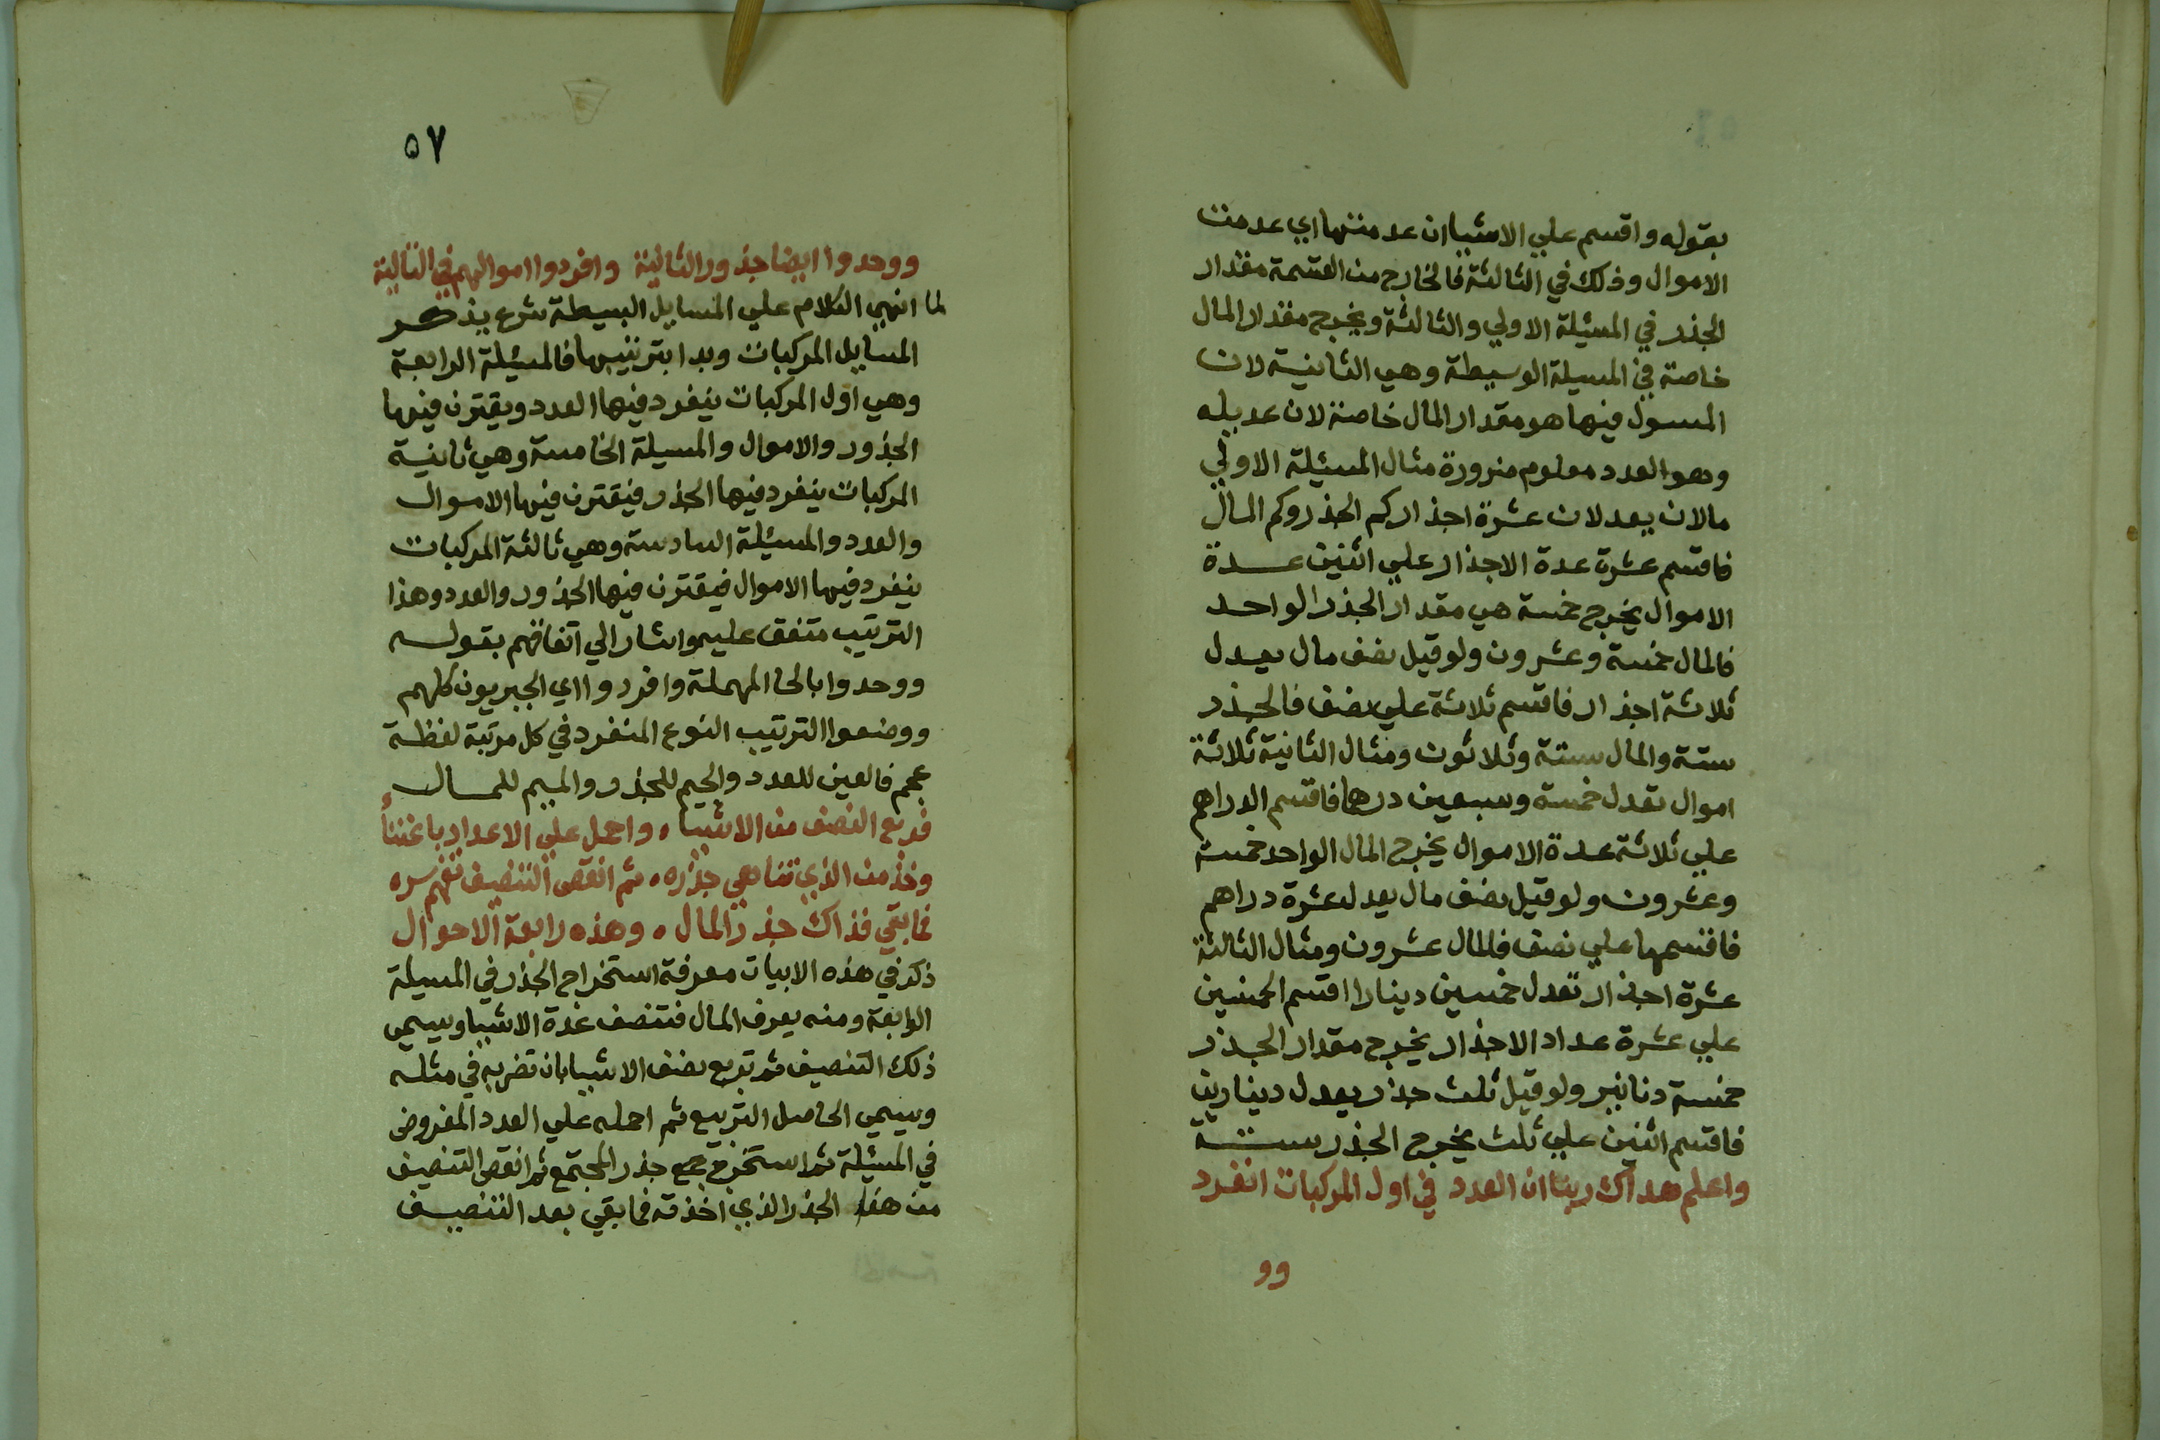 بقوله واقسم علي الاشيا ان عدمتها اي عدمت
الاموال وذلك في الثالثة فالخارج من القسمة مقدار
الجذر في المسئلة الاولي والثالثة ويخرج مقدار المال
خاصة في المسيلة الوسيطة وهي الثانية لان
المسول فيها هو مقدار المال خاصة لان عديله
وهو العدد معلوم ضرورة مثال المسئلة الاولي
مالان يعدلان عشرة اجذار كم الجذر وكم المال
فاقسم عشرة عدة الاجذار علي اثنين عدة
الاموال يخرج خمسة هي مقدار الجذر الواحد
فالمال خمسة وعشرون ولو قيل نصف مال يعدل
ثلاثة اجذار فاقسم ثلاثة علي نصف فالجذر
ستة والمال ستة وثلاثون ومثال الثانية ثلاثة
اموال تعدل خمسة وسبعين درهما فاقسم الدراهم
علي ثلاثة عدة الاموال يخرج المال الواحد خمسة
وعشرون ولو قيل نصف مال يعدل عشرة دراهم
فاقسمها علي نصف فالمال عشرون ومثال الثالثة
عشرة اجذار تعدل خمسين دينارا اقسم الخمسين
علي عشرة عداد الاجذار يخرج مقدار الجذر
خمسة دنانير ولو قيل ثلث جذر يعدل دينارين
فاقسم اثنين علي ثلث يخرج الجذر ستة
واعلم هداك ربنا ان العدد في اول المركبات انفرد
وو
٥٧
ووحدوا ايضا جذور الثانية وافردوا اموالهم في التالية
لما انهي الكلام علي المسايل البسيطة شرع يذكر
المسايل المركبات وبدا بترتيبها فالمسئلة الرابعة
وهي اول المركبات ينفرد فيها العدد ويقترن فيها
الجذور والاموال والمسيلة الخامسة وهي ثانية
المركبات ينفرد فيها الجذر فيقترن فيها الاموال
والعدد والمسئلة السادسة وهي ثالثة المركبات
ينفرد فيها الاموال فيقترن فيها الجذور والعدد وهذا
الترتيب متفق عليه واشار الي اتفاقهم بقوله
ووحدوا بالحا المهملة وافردوا اي الجبريون كلهم
ووضعوا الترتيب النوع المنفرد في كل مرتبة لفظة
عجم فالعين للعدد والجيم للجذر والميم للمال
فربع النصف من الاشيا ، واحمل علي الاعداد باعتناء
وخذ من الذي تناهي جذره ، ثم انقص التنصيف تفهم سره
فما بقي فذاك جذر المال ، وهذه رابعة الاحوال
ذكر في هذه الابيات معرفة استخراج الجذر في المسيلة
الرابعة ومنه يعرف المال فتنصف عدة الاشيا ويسمي
ذلك التنصيف ثم تربع نصف الاشيا بان تضربه في مثله
ويسمي الحاصل التربيع ثم احمله علي العدد المفروض
في المسئلة ثم استخرج جمع جذر المجتمع ثم انقص التنصيف
من هذا الجذر الذي اخذته فما بقي بعد التنصيف